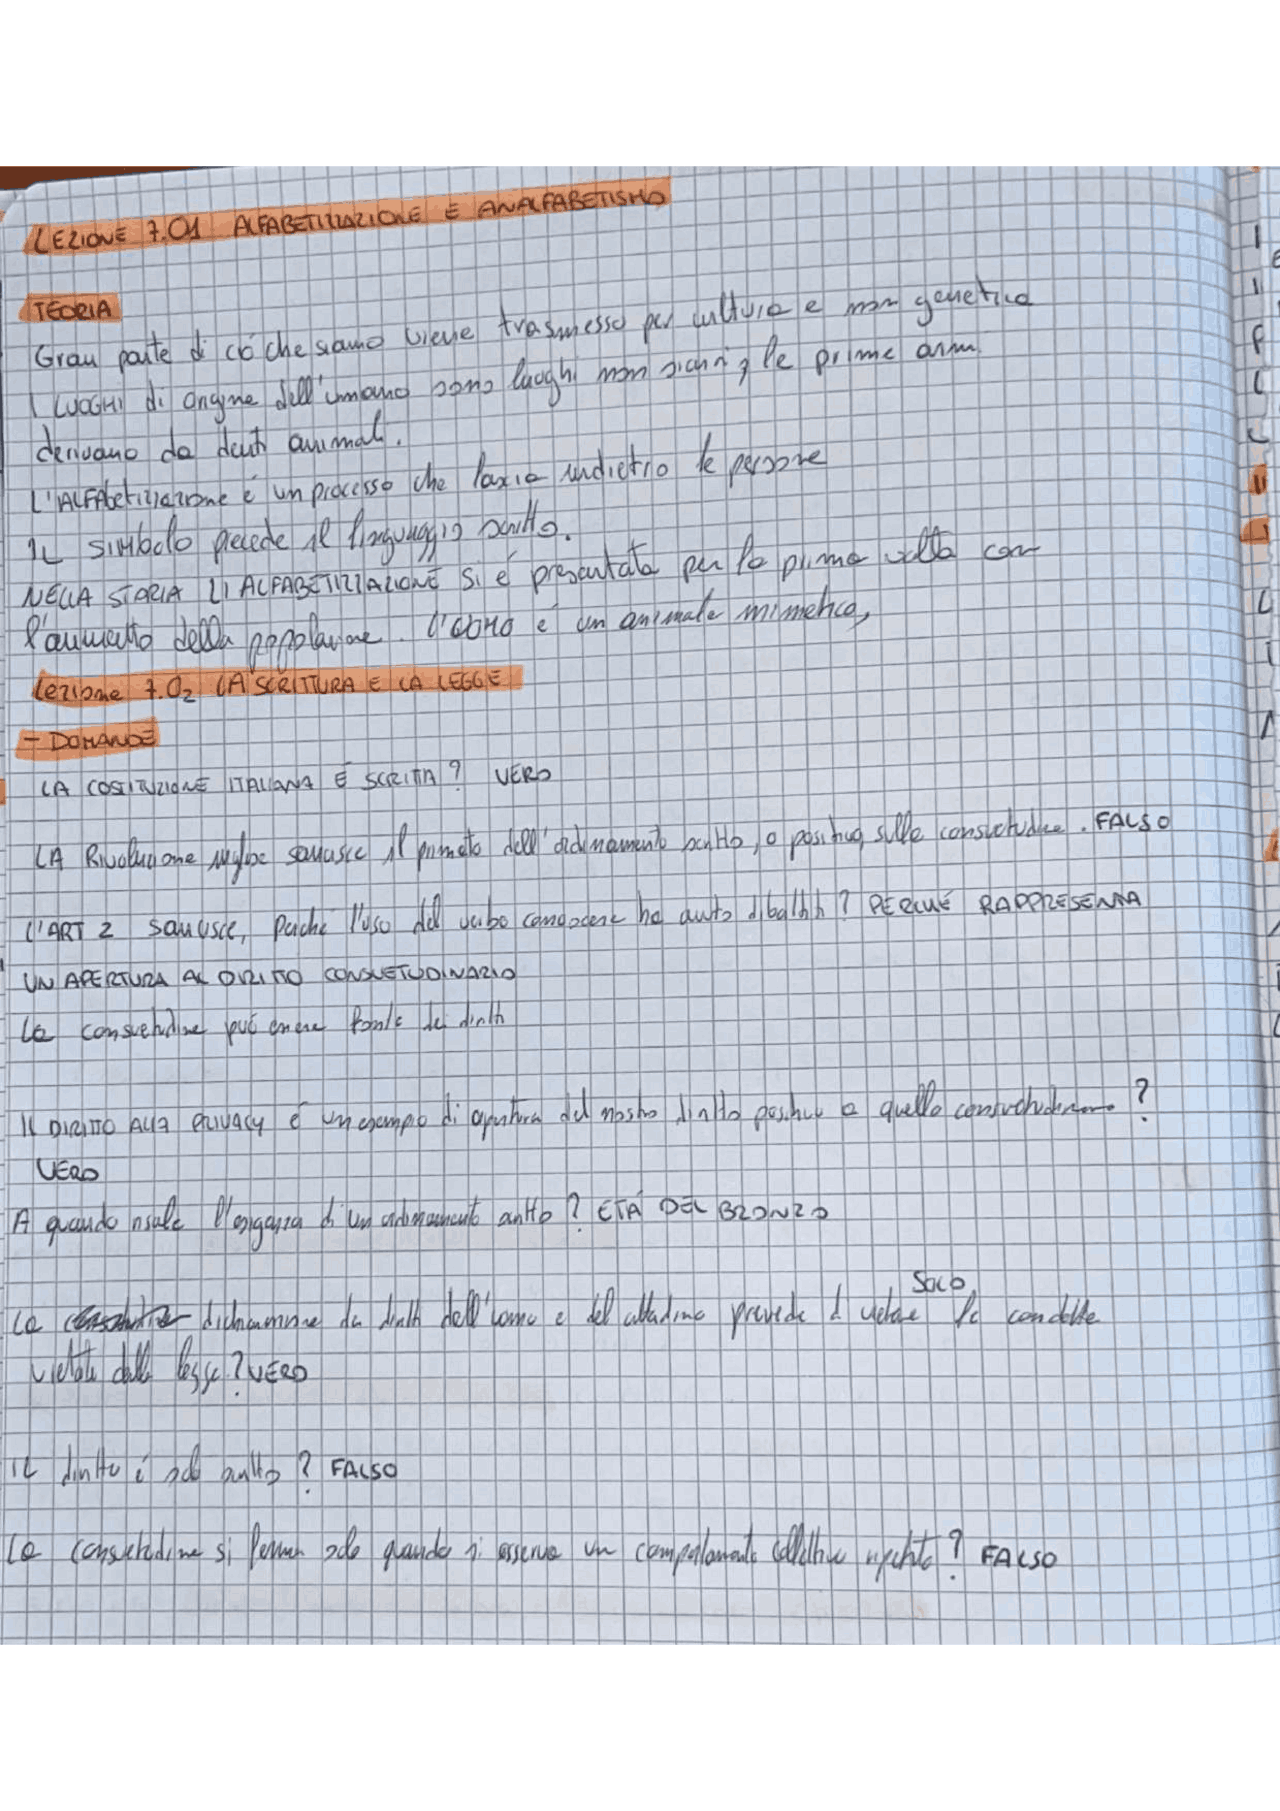 LEZIONE 7.01 ALFABETIZZAZIONE E ANALFABETISMO
TEORIA
Gran parte di ció che siamo viene trasmesso per cultura e non genetica
I LUOGHI di origine dell'umano sono luoghi non sicuri, le prime armi
derivano da denti animali.
L'ALFAbetizzazione é un processo che lascia indietro le persone
IL SIMbolo precede il linguaggio scritto.
NELLA STORIA L'ALFABETIZZAZIONE si é presentata per la prima volta con
l'aumento della popolazione. L'UOMO é un animale mimetico,
Lezione 7.02 LA SCRITTURA E LA LEGGE
- DOMANDE
LA COSTITUZIONE ITALIANA É SCRITTA? VERO
LA Rivoluzione inglese sancisce il primato dell'ordinamento scritto, o positivo, sulla consuetudine. FALSO
L'ART 2 sancisce, perché l'uso del verbo conoscere ha avuto dibattiti? PERCHÉ RAPPRESENTA
UN APERTURA AL DIRITTO CONSUETUDINARIO
La consuetudine puó essere fonte dei diritti
Il DIRITTO ALLA PRIVACY é un esempio di apertura del nostro diritto positivo a quello consuetudinario?
VERO
A quando risale l'esigenza di un ordinamento scritto? ETÁ DEL BRONZO
La dichiarazione dei diritti dell'uomo e del cittadino prevede di vietare SOLO le condotte
vietate dalla legge? VERO
IL diritto é solo scritto? FALSO
La consuetudine si forma solo quando si osserva un comportamento collettivo ripetuto? FALSO